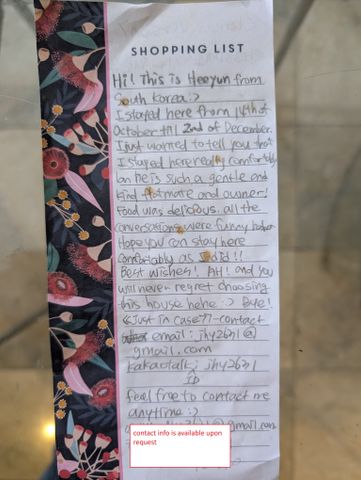 SHOPPING LIST
Hi! This is Heeyun from
South Korea :>
I stayed here from 14th of
October till 2nd of December.
I just wanted to tell you that
I stayed here really comfortably
Ian he is such a gentle and
kind flatmate and owner!
Food was delicious, all the
conversations were funny haha
Hope you can stay here
comfortably as I did!!
Best wishes! AH! and you
will never regret choosing
this house hehe :> Bye!
<<Just in case>>-contact
email: jhy2631@
gmail.com
kakaotalk: jhy2631
ID
feel free to contact me
anytime :>
@gmail.com
contact info is available upon
request